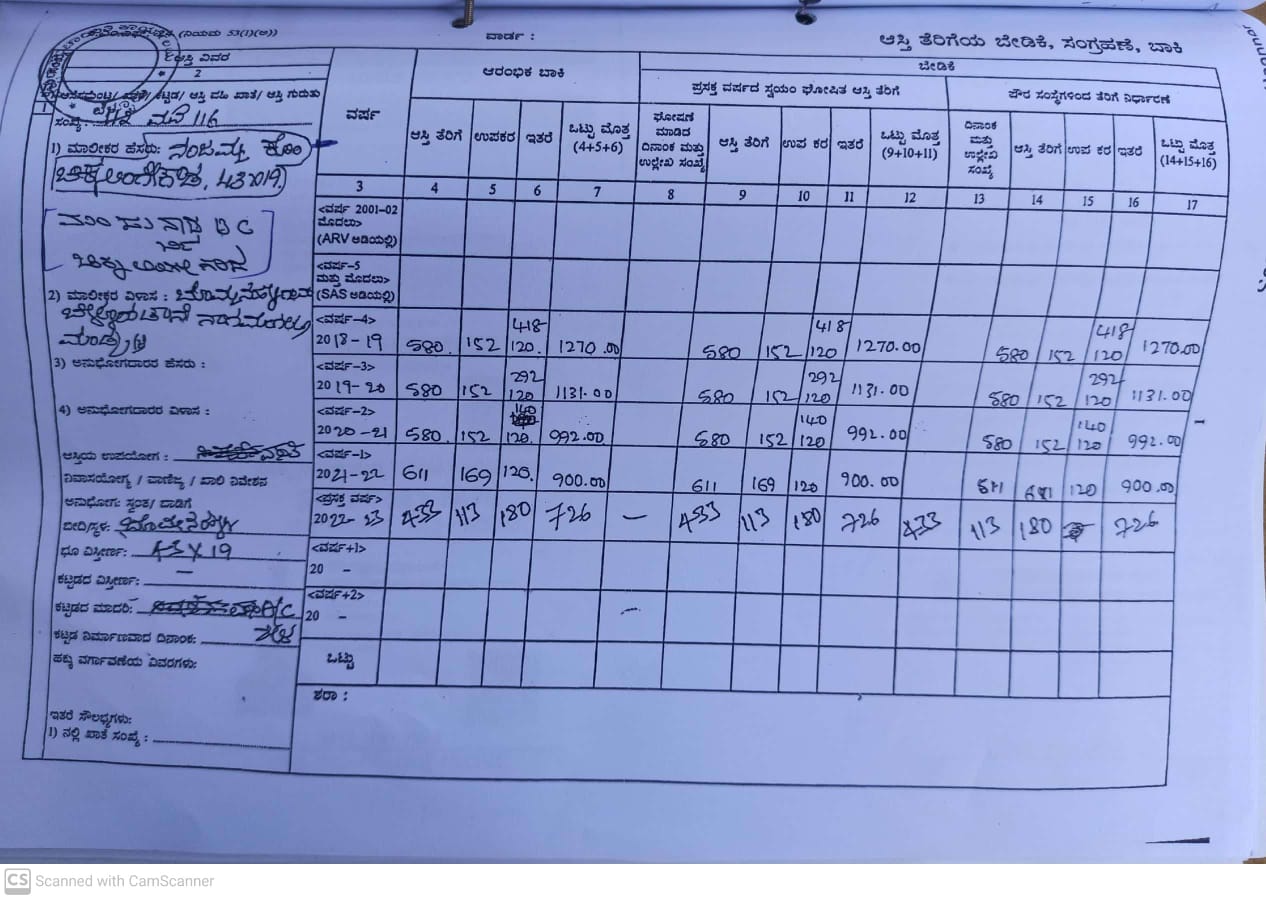 (ನಿಯಮ 53(1)(ಅ))
ವಾರ್ಡ :
ಆಸ್ತಿ ತೆರಿಗೆಯ ಬೇಡಿಕೆ, ಸಂಗ್ರಹಣೆ, ಬಾಕಿ
ಆಸ್ತಿ ವಿವರ
ವರ್ಷ
ಆರಂಭಿಕ ಬಾಕಿ
ಬೇಡಿಕೆ
ಪ್ರಸಕ್ತ ವರ್ಷದ ಸ್ವಯಂ ಘೋಷಿತ ಆಸ್ತಿ ತೆರಿಗೆ
ಪೌರ ಸಂಸ್ಥೆಗಳಿಂದ ತೆರಿಗೆ ನಿರ್ಧಾರಣೆ
ಆಸ್ತಿ ತೆರಿಗೆ ಉಪಕರ ಇತರೆ ಒಟ್ಟು ಮೊತ್ತ (4+5+6)
ಘೋಷಣೆ ಮಾಡಿದ ದಿನಾಂಕ ಮತ್ತು ಉಲ್ಲೇಖ ಸಂಖ್ಯೆ ಆಸ್ತಿ ತೆರಿಗೆ ಉಪ ಕರ ಇತರೆ ಒಟ್ಟು ಮೊತ್ತ (9+10+11)
ದಿನಾಂಕ ಮತ್ತು ಉಲ್ಲೇಖ ಸಂಖ್ಯೆ ಆಸ್ತಿ ತೆರಿಗೆ ಉಪ ಕರ ಇತರೆ ಒಟ್ಟು ಮೊತ್ತ (14+15+16)
2
3 4 5 6 7 8 9 10 11 12 13 14 15 16 17
ಕಟ್ಟಡ/ ಆಸ್ತಿ ವಹಿ ಖಾತೆ/ ಆಸ್ತಿ ಗುರುತು
ಸಂಖ್ಯೆ: ಮನೆ 116
1) ಮಾಲೀಕರ ಹೆಸರು: ನಂಜಮ್ಮ ಕೋಂ
43x19
BC
ಬಿನ್
2) ಮಾಲೀಕರ ವಿಳಾಸ :
ಮಂಡ್ಯ
3) ಅನುಭೋಗದಾರರ ಹೆಸರು :
4) ಅನುಭೋಗದಾರರ ವಿಳಾಸ :
ಆಸ್ತಿಯ ಉಪಯೋಗ : ವಸತಿ
ನಿವಾಸಯೋಗ್ಯ / ವಾಣಿಜ್ಯ / ಖಾಲಿ ನಿವೇಶನ
ಅನುಭೋಗ: ಸ್ವಂತ/ ಬಾಡಿಗೆ
ಬೀದಿ/ಸ್ಥಳ:
ಭೂ ವಿಸ್ತೀರ್ಣ: 43 X 19
ಕಟ್ಟಡದ ವಿಸ್ತೀರ್ಣ: –
ಕಟ್ಟಡದ ಮಾದರಿ:
ಕಟ್ಟಡ ನಿರ್ಮಾಣವಾದ ದಿನಾಂಕ:
ಹಕ್ಕು ವರ್ಗಾವಣೆಯ ವಿವರಗಳು:
ಇತರೆ ಸೌಲಭ್ಯಗಳು:
1) ನಲ್ಲಿ ಖಾತೆ ಸಂಖ್ಯೆ :
<ವರ್ಷ 2001-02
ಮೊದಲು>
(ARV ಅಡಿಯಲ್ಲಿ)
<ವರ್ಷ-5
ಮತ್ತು ಮೊದಲು>
(SAS ಅಡಿಯಲ್ಲಿ)
<ವರ್ಷ-4> 418 418 418
2018-19 580. 152 120. 1270.00 580 152 120 1270.00 580 152 120 1270.00
<ವರ್ಷ-3> 292 292 292
2019-20 580 152 120 1131.00 580 152 120 1131.00 580 152 120 1131.00
<ವರ್ಷ-2> 140 140 140
2020-21 580. 152 120. 992.00 580 152 120 992.00 580 152 120 992.00
<ವರ್ಷ-1>
2021-22 611 169 120. 900.00 611 169 120 900.00 611 120 900.00
<ಪ್ರಸಕ್ತ ವರ್ಷ>
2022-23 433 113 180 726 – 433 113 180 726 433 113 180 726
<ವರ್ಷ+1>
20 –
<ವರ್ಷ+2>
20 –
ಒಟ್ಟು
ಶರಾ :
CS Scanned with CamScanner